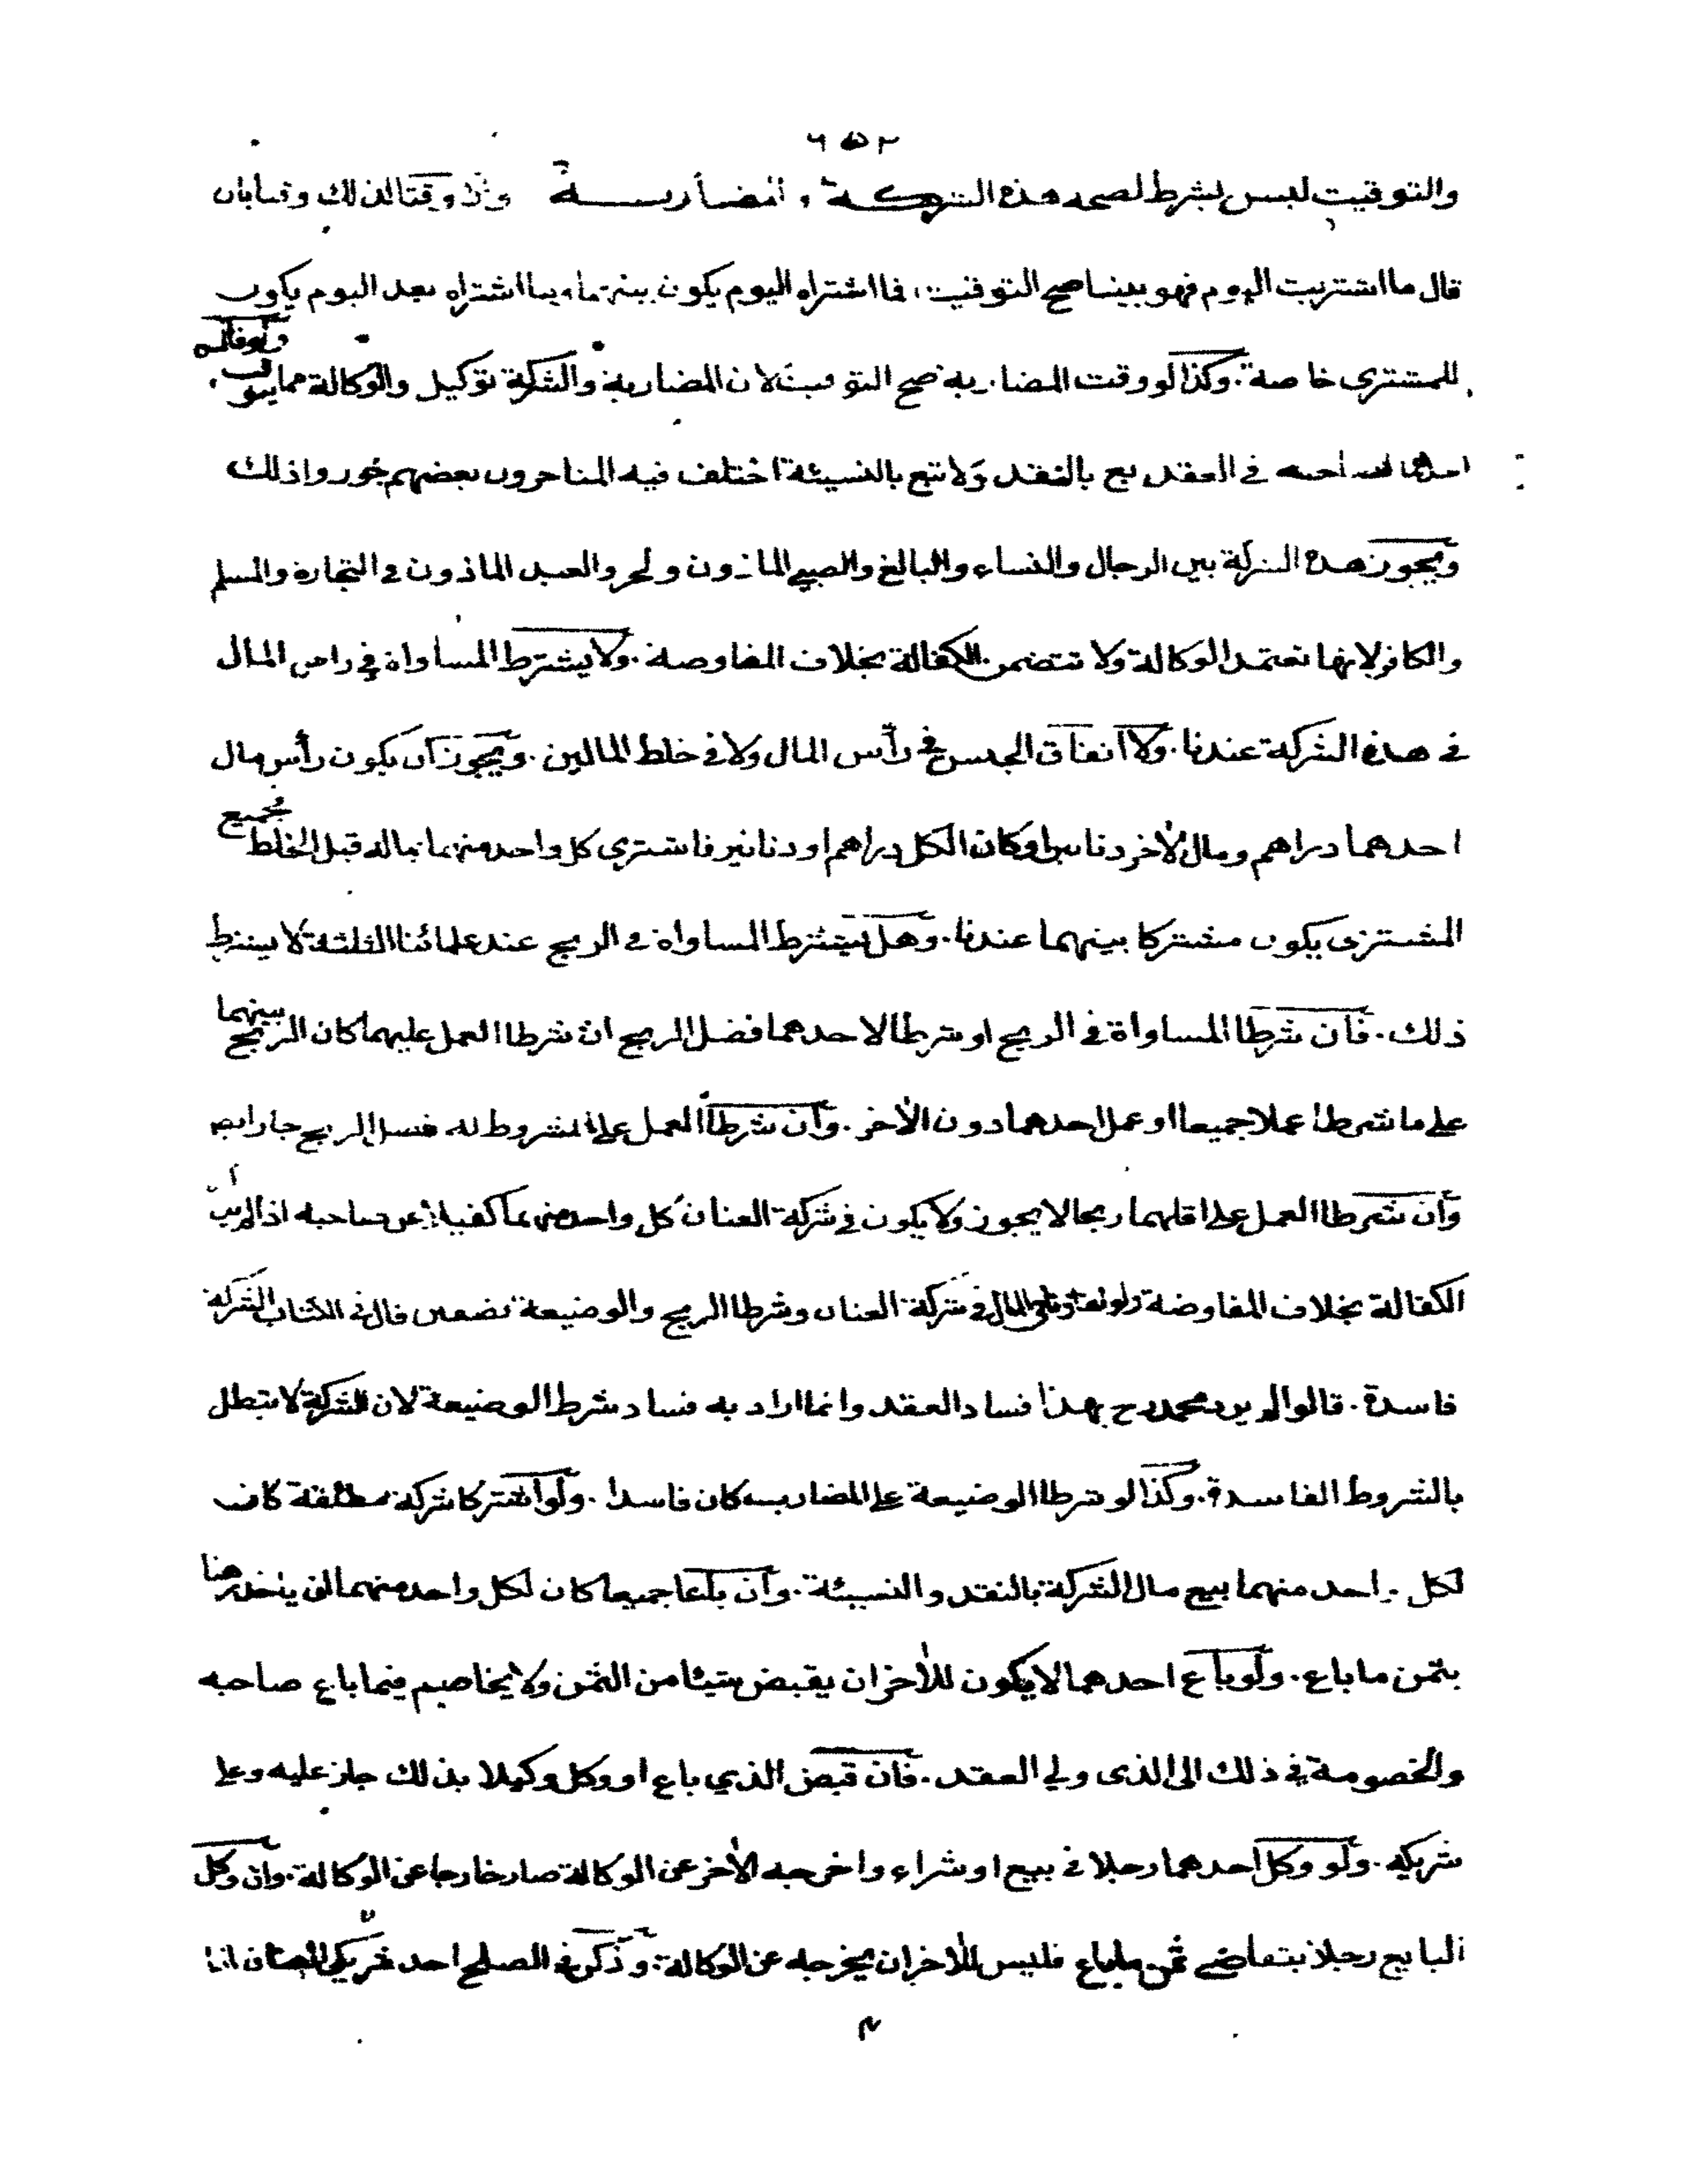 ٦٥٢
والتوقيت ليس بشرط لصحة هذه الشركة والمضاربة وان وقتا لذلك وقتا بان
قال ما اشتريت اليوم فهو بيننا صح التوقيت، فما اشتراه اليوم يكون بينهما وما اشتراه بعد اليوم يكون
للمشتري خاصة. وكذا لو وقت المضاربة صح التوقيت لان المضاربة والشركة توكيل والوكالة مما يتوقت. ولو قال
احدهما لصاحبه في العقد بع بالنقد ولا تبع بالنسيئة اختلف فيه المتأخرون بعضهم جوزوا ذلك
ويجوز هذه الشركة بين الرجال والنساء والبالغ والصبي الماذون والحر والعبد الماذون في التجارة والمسلم
والكافر لانها تعتمد الوكالة ولا تتضمن الكفالة بخلاف المفاوضة. ولا يشترط المساواة في راس المال
في هذه الشركة عندنا. ولا اتفاق الجنس في رأس المال ولا في خلط المالين. ويجوز ان يكون رأس مال
احدهما دراهم ومال الأخر دنانير او كان الكل دراهم او دنانير فاشترى كل واحد منهما بماله قبل الخلط جميع
المشترى يكون مشتركا بينهما عندنا. وهل يشترط المساواة في الربح عند علمائنا الثلثة لا يشترط
ذلك. فان شرطا المساواة في الربح او شرطا لاحدهما فضل الربح ان شرطا العمل عليهما كان الربح بينهما
على ما شرطا عملا جميعا او عمل احدهما دون الأخر. وان شرطا العمل على المشروط له فضل الربح جاز ايضا
وان شرطا العمل على اقلهما ربحا لا يجوز ولا يكون في شركة العنان كل واحد منهما كفيلا عن صاحبه اذا لم يذكر
الكفالة بخلاف المفاوضة ولو تفاوتا في المال في شركة العنان وشرطا الربح والوضيعة نصفين قال في الكتاب الشركة
فاسدة. قالوا لم يرد محمد رح بهذا فساد العقد وانما اراد به فساد شرط الوضيعة لان الشركة لا تبطل
بالشروط الفاسدة. وكذا لو شرطا الوضيعة على المضارب كان فاسدا. ولو اشتركا شركة مطلقة كان
لكل واحد منهما بيع مال الشركة بالنقد والنسيئة. وان باعا جميعا كان لكل واحد منهما ان ياخذ رهنا
بثمن ما باع. ولو باع احدهما لا يكون للأخر ان يقبض شيئا من الثمن ولا يخاصم فيما باع صاحبه
والخصومة في ذلك الى الذى ولي العقد. فان قبض الذي باع او وكل وكيلا بذلك جاز عليه وعلى
شريكه. ولو وكل احدهما رجلا في بيع او شراء واخرجه الأخر عن الوكالة صار خارجا عن الوكالة. وان وكل
البايع رجلا بتقاضي ثمن ما باع فليس للأخر ان يخرجه عن الوكالة. وذكر في الصلح احد شريكي العنان اذا